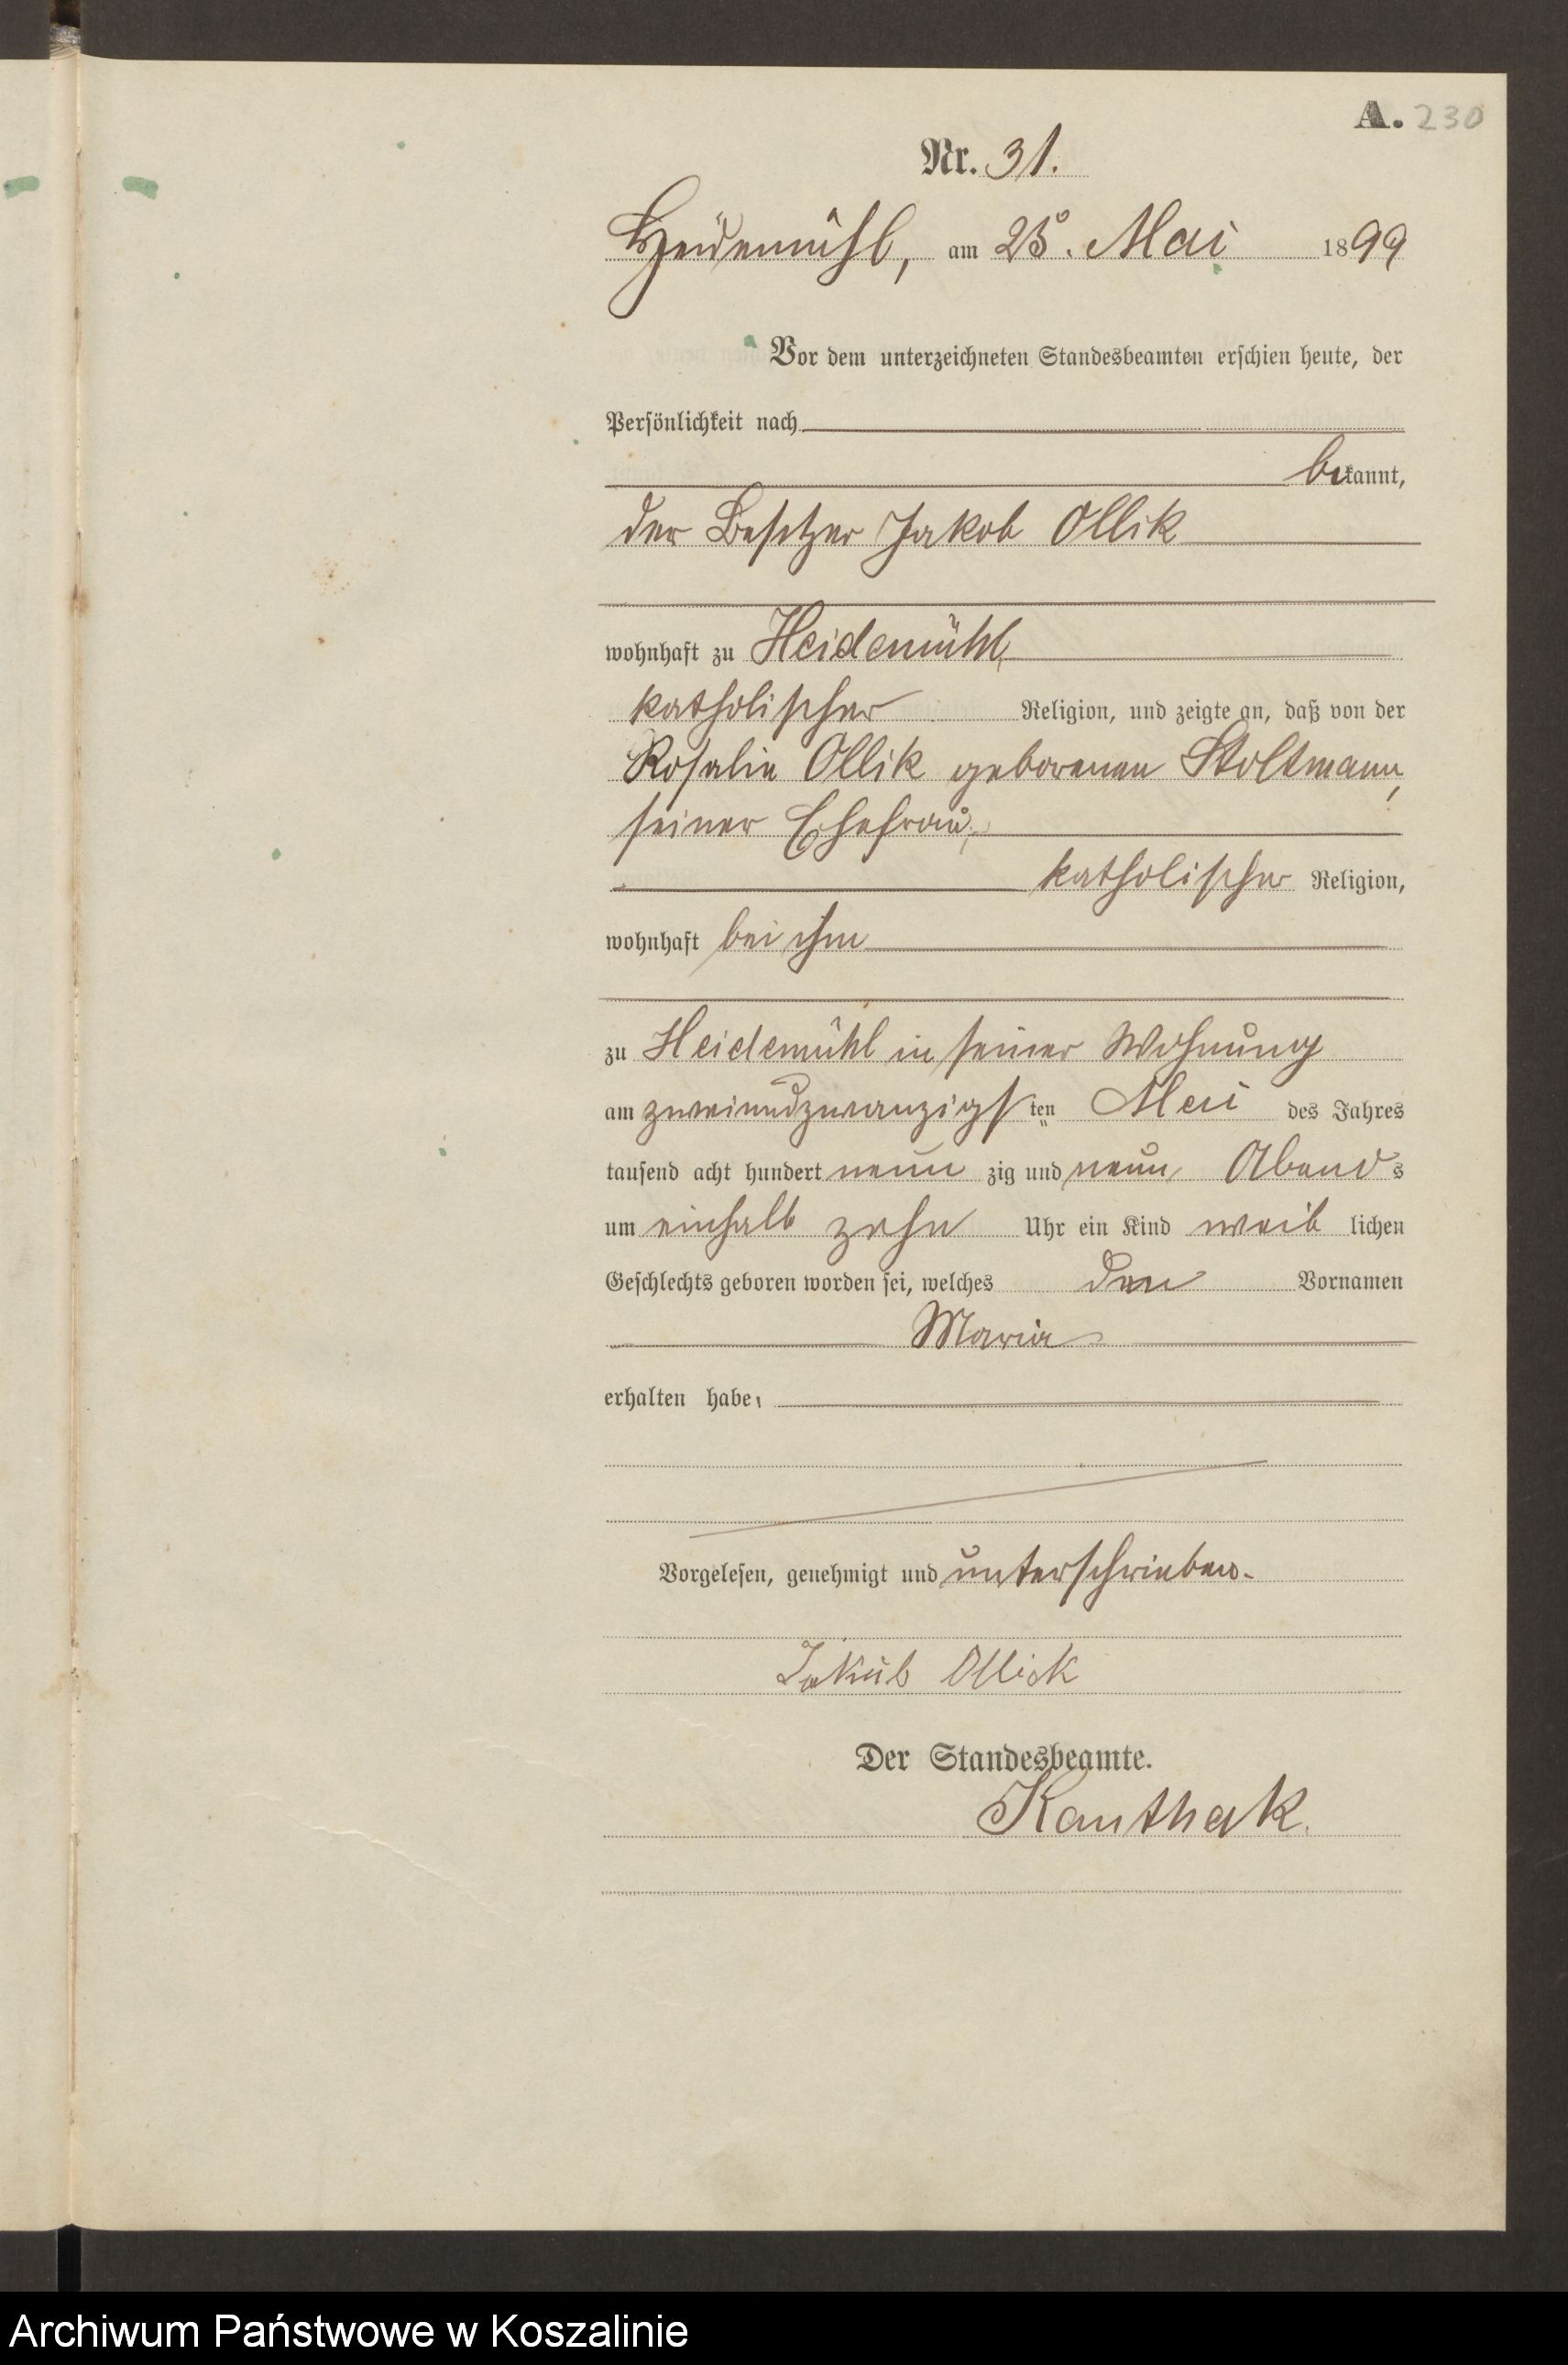 A. 230
Nr. 31.
Heidemühl, am 25. Mai 1899
Vor dem unterzeichneten Standesbeamten erschien heute, der
Persönlichkeit nach
bekannt,
der Besitzer Jakob Ollik
wohnhaft zu Heidemühl,
katholischer Religion, und zeigte an, daß von der
Rosalie Ollik geborenen Stoltmann,
seiner Ehefrau,
katholischer Religion,
wohnhaft bei ihm
zu Heidemühl in seiner Wohnung
am zweiundzwanzigsten Mai des Jahres
tausend acht hundert neunzig und neun, Abends
um einhalb zehn Uhr ein Kind weiblichen
Geschlechts geboren worden sei, welches den Vornamen
Maria
erhalten habe,
Vorgelesen, genehmigt und unterschrieben.
Jakub Ollick
Der Standesbeamte.
Kanthak.
Archiwum Państwowe w Koszalinie